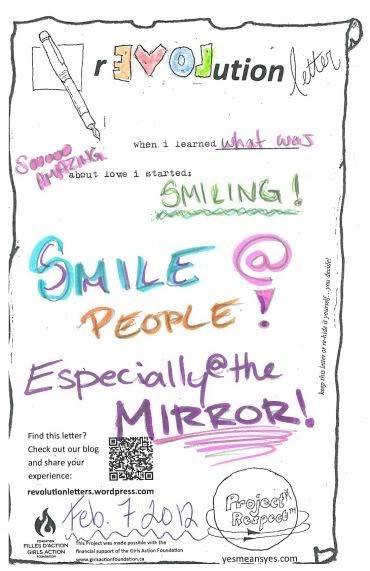 rEVOLution letter
when i learned what was
Sooooo
AMAZING
about love i started:
SMILING!
SMILE @
PEOPLE!
Especially @ the
MIRROR!
keep this letter or re-hide it yourself...you decide!
Find this letter?
Check out our blog
and share your
experience:
revolutionletters.wordpress.com
Feb. 7 2012
Project
Respect™
FONDATION
FILLES D'ACTION
GIRLS ACTION
FOUNDATION
This Project was made possible with the
financial support of the Girls Action Foundation
www.girlsactionfoundation.ca
yesmeansyes.com